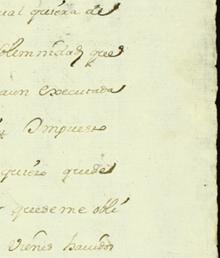 ual quiera de
olemnidad que
aun executada
Ympuesto
quiero quede
quedeme obli
vienes havidos